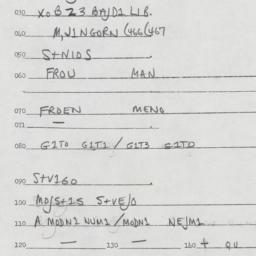 030 X0B Z3 BAJD1 LIB.
040 M,J1NGORN (466(467
050 S+NIDS
060 FROU MAN
070 FRDEN MENG
071 —
080 G2TO G1T1 / G1T3 G2TO
090 S+V160
100 MOJS+1S S+VEJO
110 A MODN2 NUM1 / MODN1 NEJM1
120 — 130 — 140 + QU